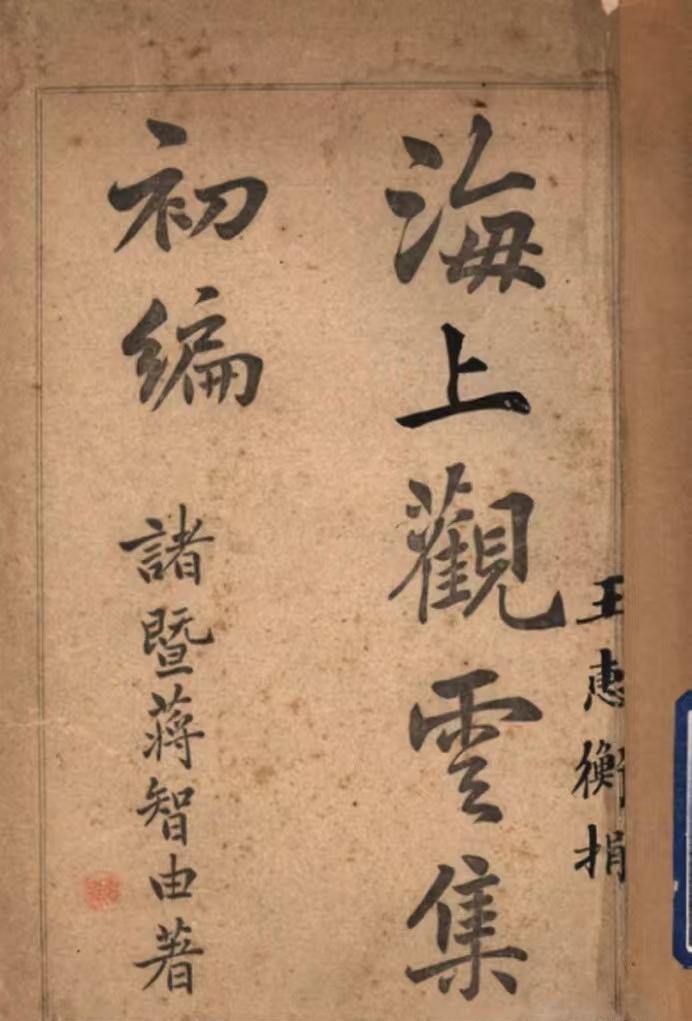 海上觀雲集
初编
諸暨蔣智由著
王惠衡捐